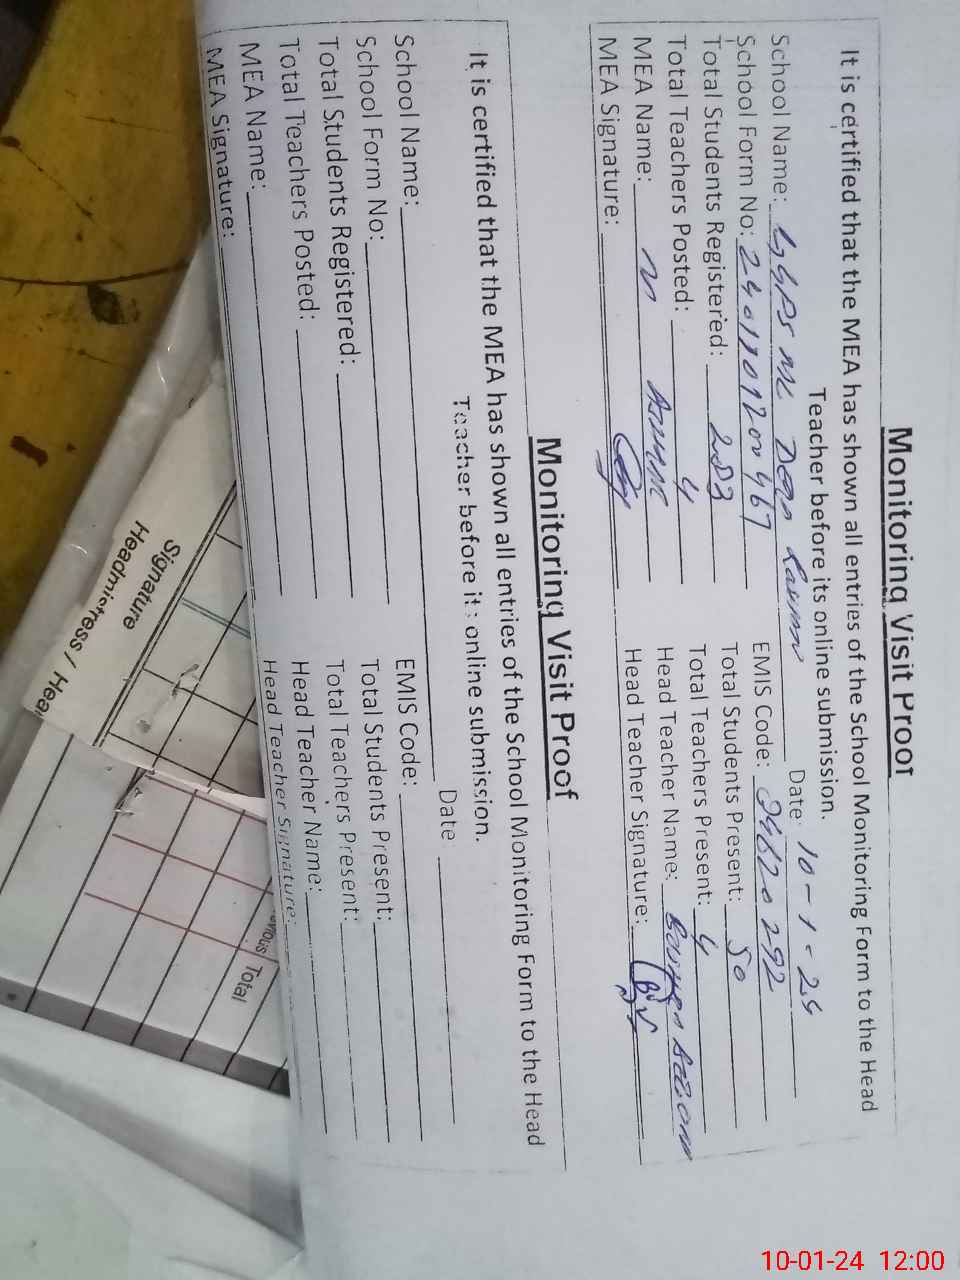 Monitoring Visit Proof
It is certified that the MEA has shown all entries of the School Monitoring Form to the Head
Teacher before its online submission.
School Name: GGPS Date: 10-1-24
School Form No: EMIS Code:
Total Students Registered: 283 Total Students Present: 50
Total Teachers Posted: 4 Total Teachers Present: 4
MEA Name: Head Teacher Name:
MEA Signature: Head Teacher Signature:
Monitoring Visit Proof
It is certified that the MEA has shown all entries of the School Monitoring Form to the Head
Teacher before its online submission.
School Name: Date:
School Form No: EMIS Code:
Total Students Registered: Total Students Present:
Total Teachers Posted: Total Teachers Present:
MEA Name: Head Teacher Name:
MEA Signature: Head Teacher Signature:
Signature
Headmistress / Hea
Total
10-01-24 12:00